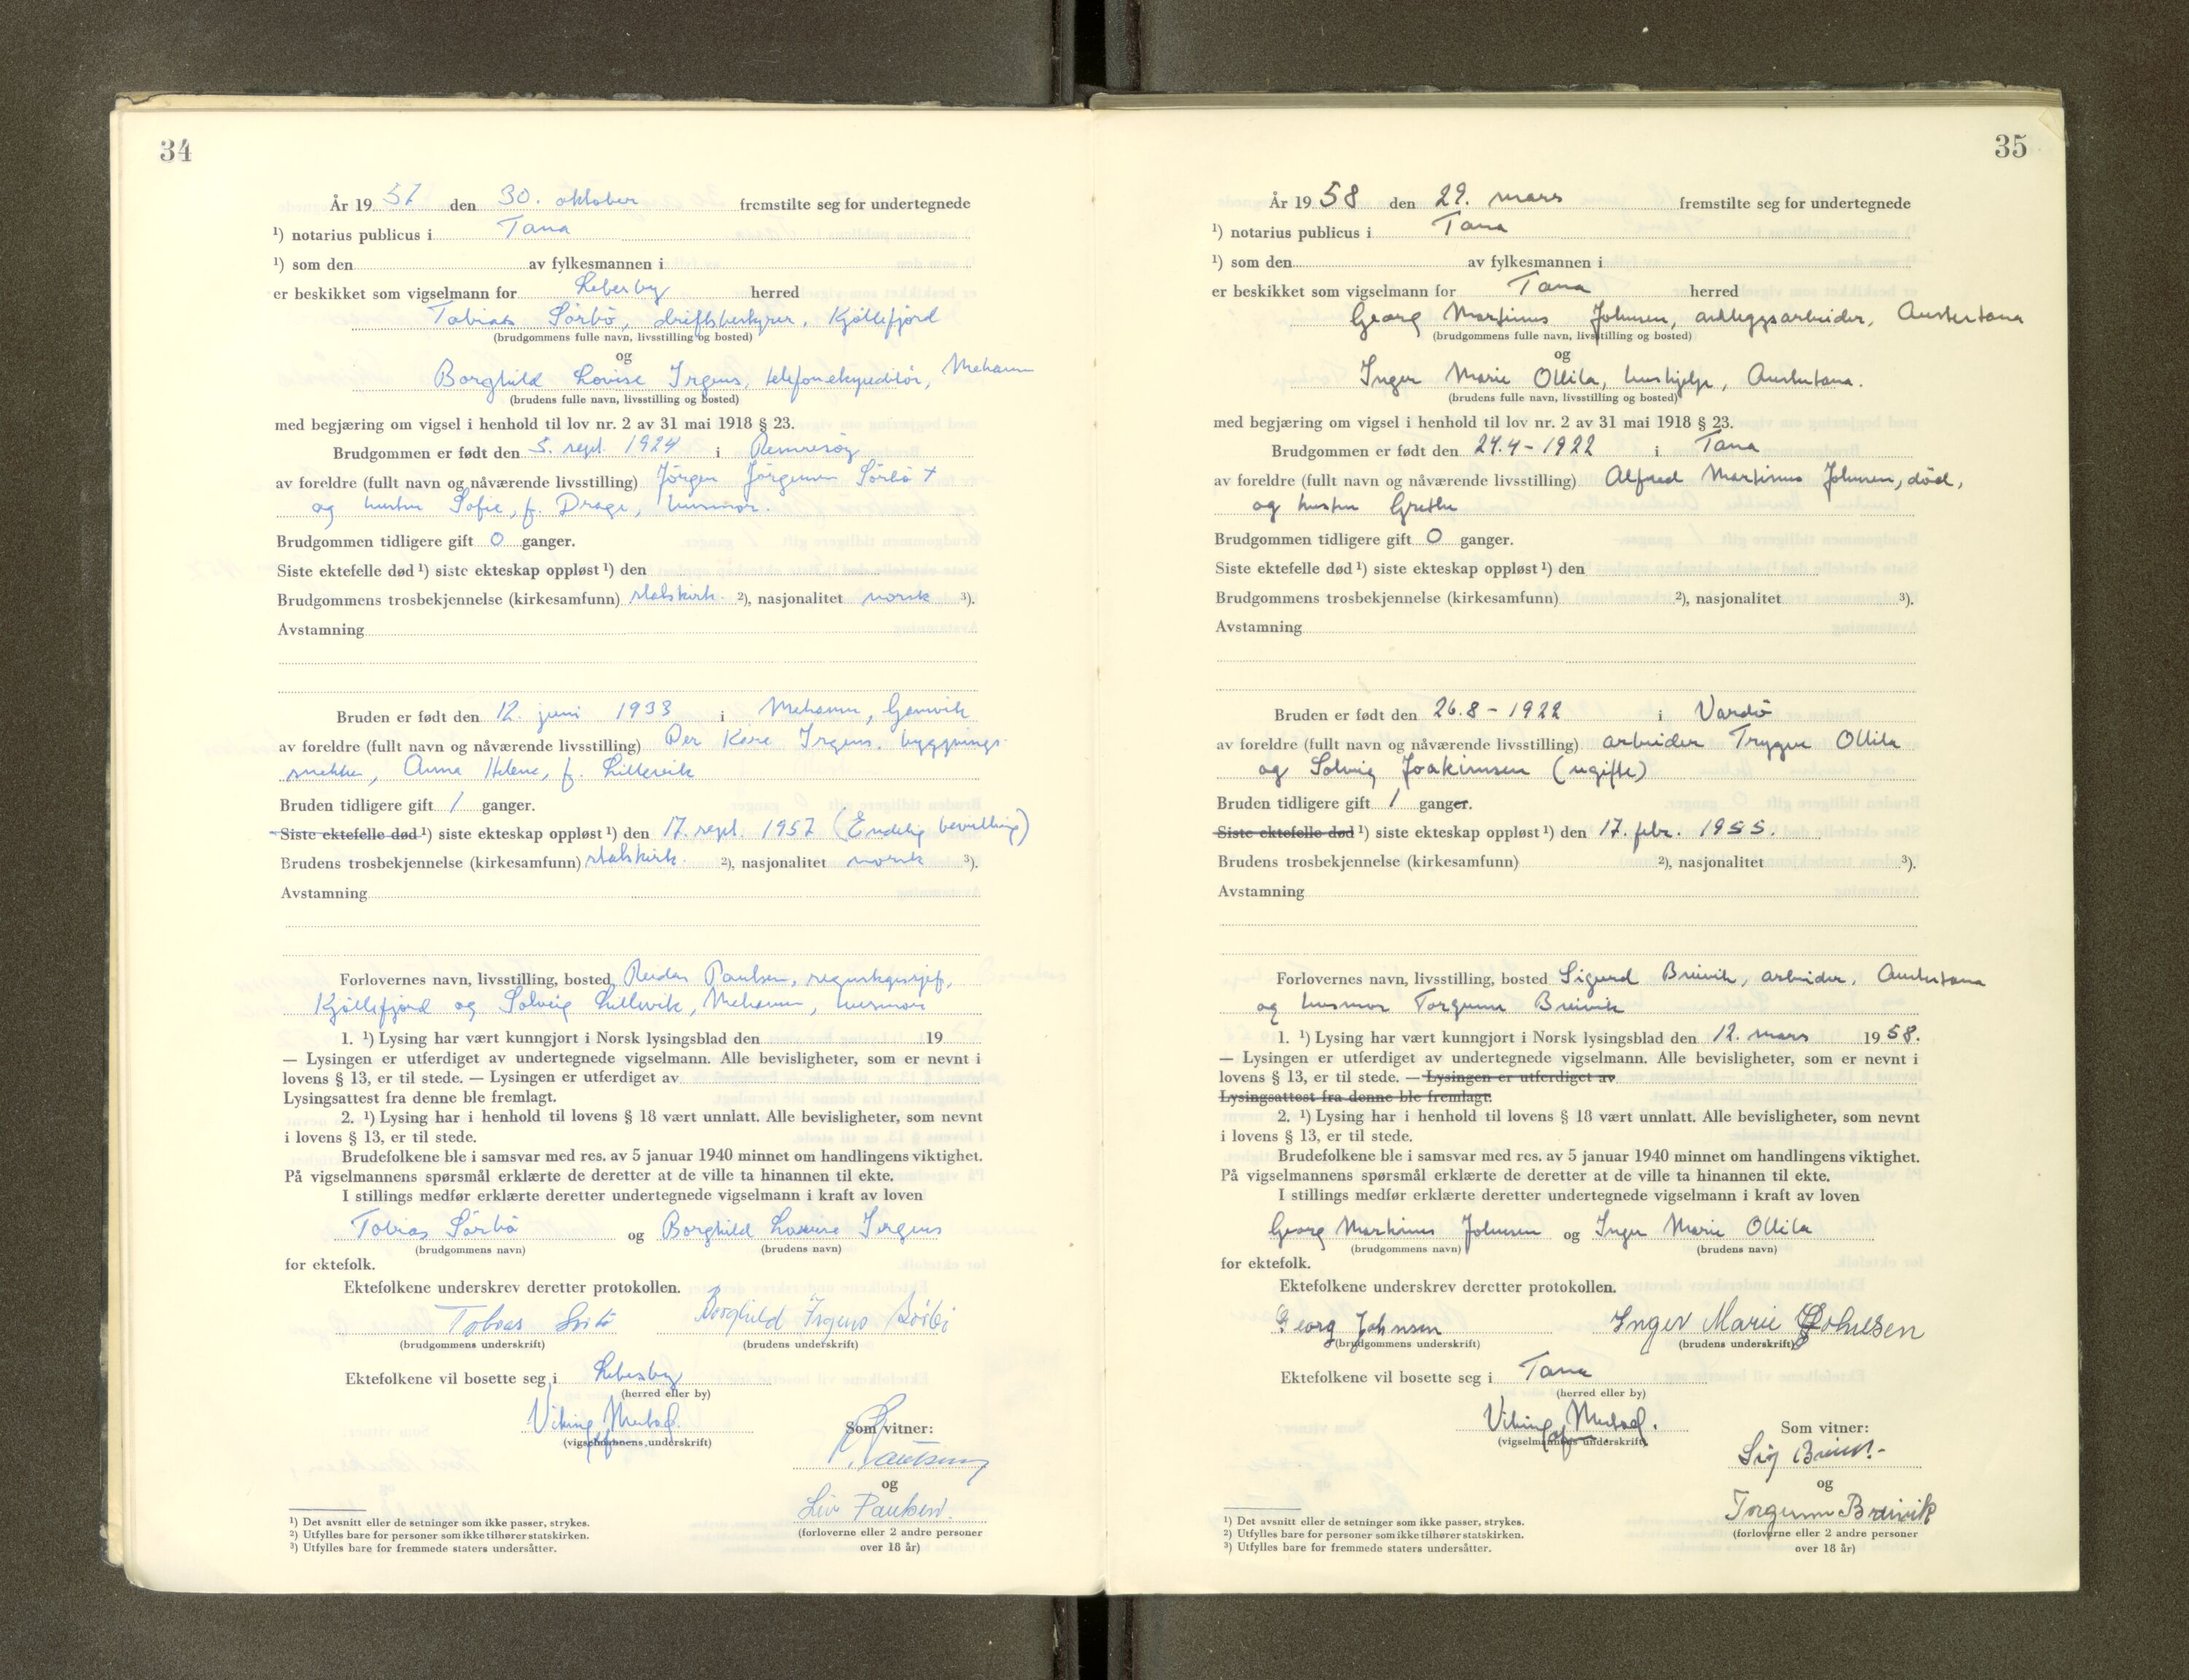 34
År 19 57 den 30. oktober fremstilte seg for undertegnede
¹) notarius publicus i Tana
¹) som den av fylkesmannen i
er beskikket som vigselmann for Lebesby herred
Tobias Sörbö, driftsbestyrer, Kjöllefjord
(brudgommens fulle navn, livsstilling og bosted)
og
Borghild Lovise Irgens, telefonekspeditör, Mehamn
(brudens fulle navn, livsstilling og bosted)
med begjæring om vigsel i henhold til lov nr. 2 av 31 mai 1918 § 23.
Brudgommen er født den 5. sept. 1924 i
av foreldre (fullt navn og nåværende livsstilling) Jörgen Jörgensen Sörbö †
og hustru Sofie, f. Drage, husmor.
Brudgommen tidligere gift 0 ganger.
Siste ektefelle død ¹) siste ekteskap oppløst ¹) den
Brudgommens trosbekjennelse (kirkesamfunn) statskirk. ²), nasjonalitet norsk ³).
Avstamning
Bruden er født den 12. juni 1933 i Mehamn, Gamvik
av foreldre (fullt navn og nåværende livsstilling) Per Kåre Irgens, bygnings-
snekker, Anna Helene, f. Lillevik
Bruden tidligere gift 1 ganger.
Siste ektefelle død ¹) siste ekteskap oppløst ¹) den 17. sept. 1957 (Endelig bevilling)
Brudens trosbekjennelse (kirkesamfunn) statskirk. ²), nasjonalitet norsk ³).
Avstamning
Forlovernes navn, livsstilling, bosted Reidar Paulsen, regnskapssjef,
Kjöllefjord og Solveig Lillevik, Mehamn, husmor
1. ¹) Lysing har vært kunngjort i Norsk lysingsblad den 19
— Lysingen er utferdiget av undertegnede vigselmann. Alle bevisligheter, som er nevnt i
lovens § 13, er til stede. — Lysingen er utferdiget av
Lysingsattest fra denne ble fremlagt.
2. ¹) Lysing har i henhold til lovens § 18 vært unnlatt. Alle bevisligheter, som nevnt
i lovens § 13, er til stede.
Brudefolkene ble i samsvar med res. av 5 januar 1940 minnet om handlingens viktighet.
På vigselmannens spørsmål erklærte de deretter at de ville ta hinannen til ekte.
I stillings medfør erklærte deretter undertegnede vigselmann i kraft av loven
Tobias Sörbö og Borghild Lovise Irgens
(brudgommens navn) (brudens navn)
for ektefolk.
Ektefolkene underskrev deretter protokollen.
Tobias Sörbö Borghild Irgens Sörbö
(brudgommens underskrift) (brudens underskrift)
Ektefolkene vil bosette seg i Lebesby
(herred eller by)
Viking
(vigselmannens underskrift)
Som vitner:
og
Liv Paulsen.
(forloverne eller 2 andre personer
over 18 år)
¹) Det avsnitt eller de setninger som ikke passer, strykes.
²) Utfylles bare for personer som ikke tilhører statskirken.
³) Utfylles bare for fremmede staters undersåtter.
35
År 19 58 den 29. mars fremstilte seg for undertegnede
¹) notarius publicus i Tana
¹) som den av fylkesmannen i
er beskikket som vigselmann for Tana herred
Georg Martinus Johnsen, anleggsarbeider, Austertana
(brudgommens fulle navn, livsstilling og bosted)
og
Inger Marie Ollila, hushjelp, Austertana.
(brudens fulle navn, livsstilling og bosted)
med begjæring om vigsel i henhold til lov nr. 2 av 31 mai 1918 § 23.
Brudgommen er født den 24.4-1922 i Tana
av foreldre (fullt navn og nåværende livsstilling) Alfred Martinus Johnsen, död,
og hustru Grethe
Brudgommen tidligere gift 0 ganger.
Siste ektefelle død ¹) siste ekteskap oppløst ¹) den
Brudgommens trosbekjennelse (kirkesamfunn) ²), nasjonalitet ³).
Avstamning
Bruden er født den 26.8-1922 i Vardö
av foreldre (fullt navn og nåværende livsstilling) arbeider Trygve Ollila
og Solveig Joakimsen (ugifte)
Bruden tidligere gift 1 ganger.
Siste ektefelle død ¹) siste ekteskap oppløst ¹) den 17. febr. 1955.
Brudens trosbekjennelse (kirkesamfunn) ²), nasjonalitet ³).
Avstamning
Forlovernes navn, livsstilling, bosted Sigurd Breivik, arbeider, Austertana
og husmor Torgunn Breivik
1. ¹) Lysing har vært kunngjort i Norsk lysingsblad den 12. mars 19 58.
— Lysingen er utferdiget av undertegnede vigselmann. Alle bevisligheter, som er nevnt i
lovens § 13, er til stede. — Lysingen er utferdiget av
Lysingsattest fra denne ble fremlagt.
2. ¹) Lysing har i henhold til lovens § 18 vært unnlatt. Alle bevisligheter, som nevnt
i lovens § 13, er til stede.
Brudefolkene ble i samsvar med res. av 5 januar 1940 minnet om handlingens viktighet.
På vigselmannens spørsmål erklærte de deretter at de ville ta hinannen til ekte.
I stillings medfør erklærte deretter undertegnede vigselmann i kraft av loven
Georg Martinus Johnsen og Inger Marie Ollila
(brudgommens navn) (brudens navn)
for ektefolk.
Ektefolkene underskrev deretter protokollen.
Georg Johnsen Inger Marie Johnsen
(brudgommens underskrift) (brudens underskrift)
Ektefolkene vil bosette seg i Tana
(herred eller by)
Viking
(vigselmannens underskrift)
Som vitner:
Sig Breivik
og
Torgunn Breivik
(forloverne eller 2 andre personer
over 18 år)
¹) Det avsnitt eller de setninger som ikke passer, strykes.
²) Utfylles bare for personer som ikke tilhører statskirken.
³) Utfylles bare for fremmede staters undersåtter.